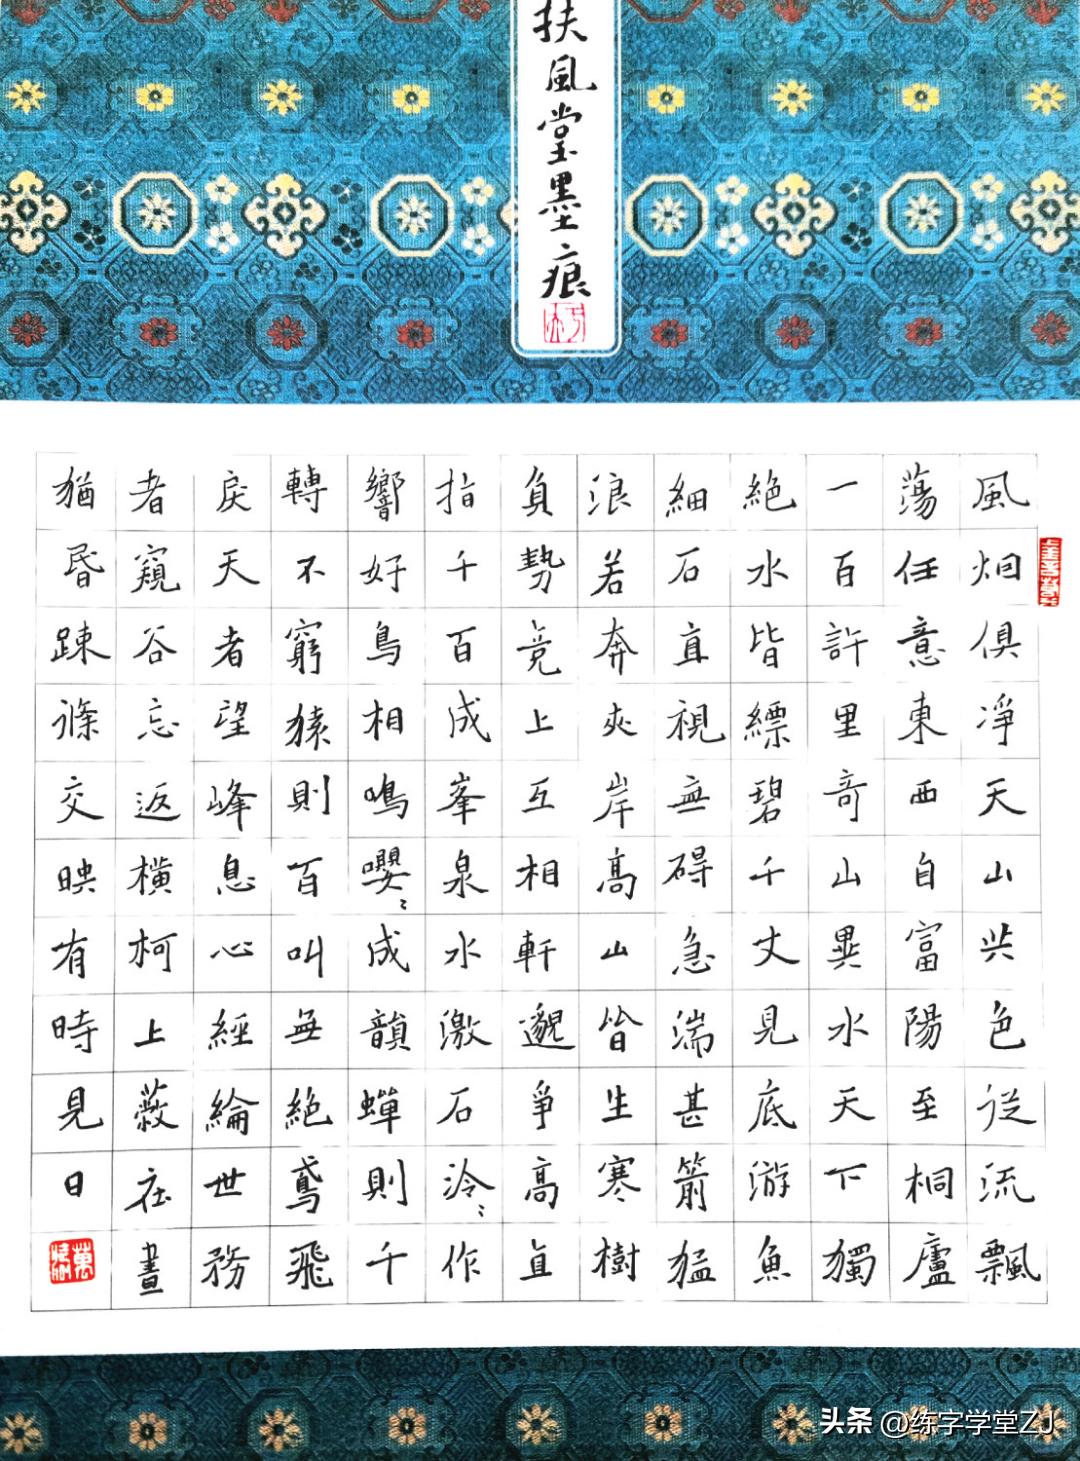 扶風堂墨痕
風烟俱凈天山共色從流飄
蕩任意東西自富陽至桐廬
一百許里奇山異水天下獨
絕水皆縹碧千丈見底游魚
細石直視無碍急湍甚箭猛
浪若奔夾岸高山皆生寒樹
負勢竞上互相軒邈爭高直
指千百成峯泉水激石泠〻作
響好鳥相鳴嚶〻成韻蟬則千
轉不窮猿則百叫無絕鳶飛
戾天者望峰息心經綸世務
者窺谷忘返橫柯上蔽在晝
猶昏踈條交映有時見日
头条 @练字学堂ZJ